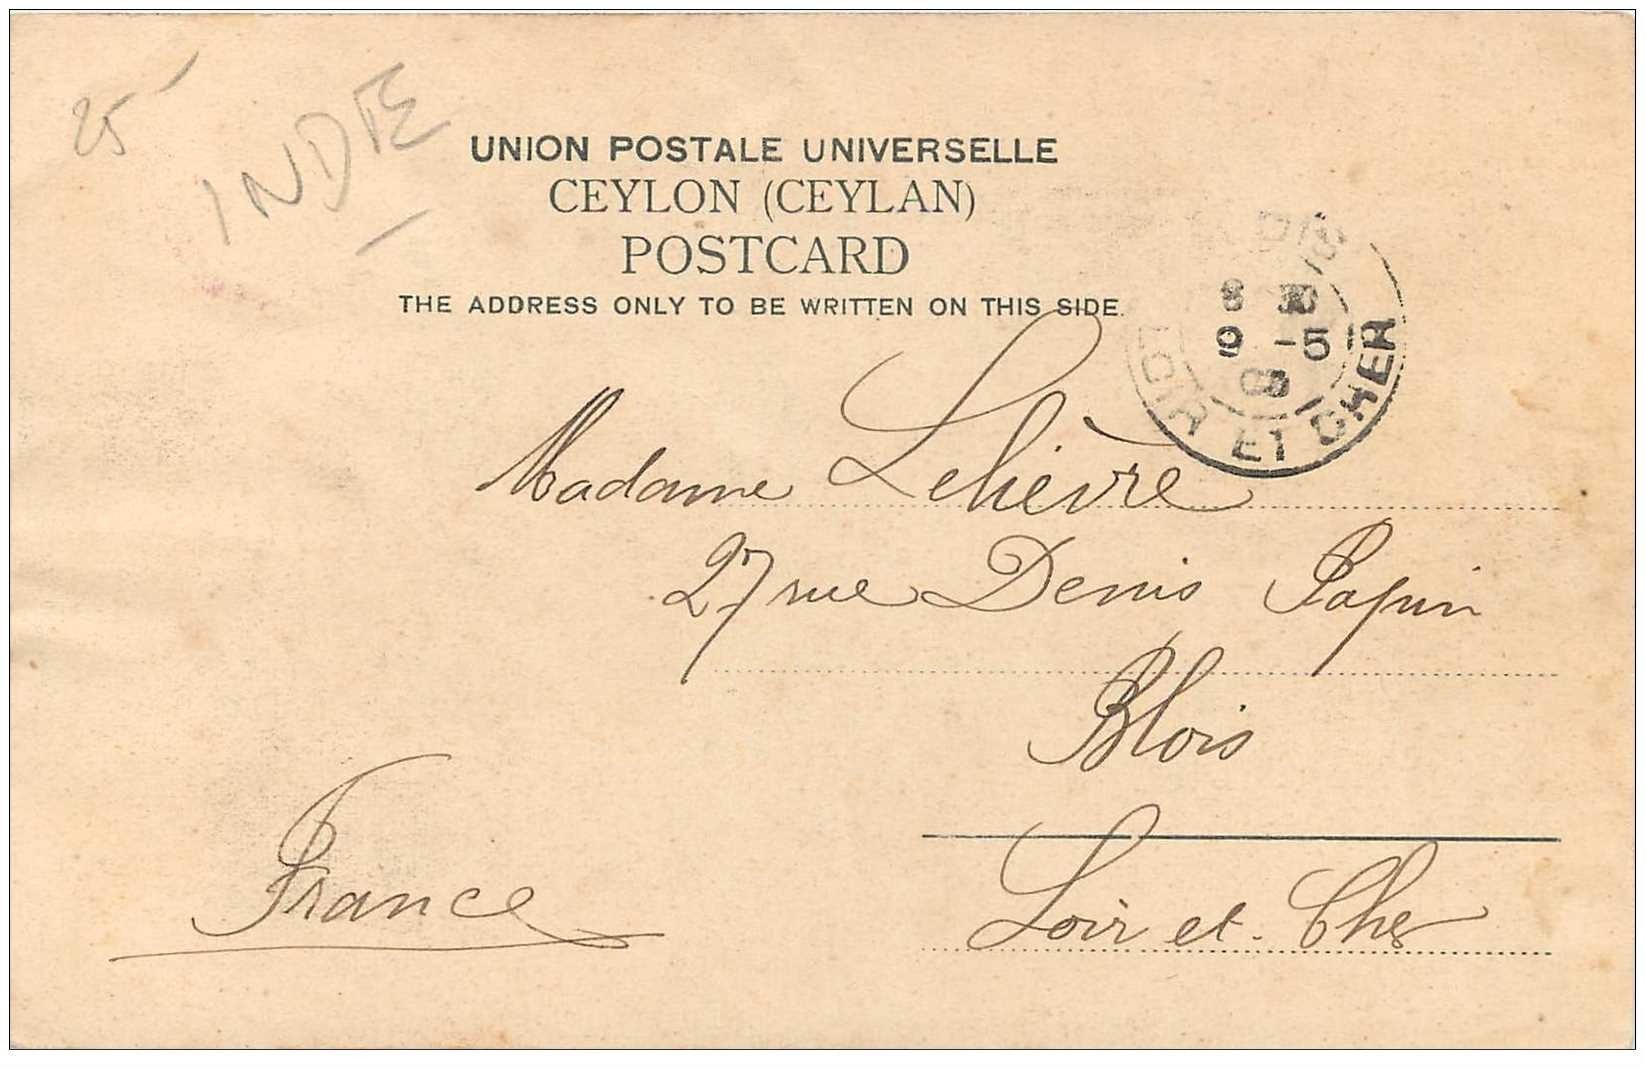 25
INDE
UNION POSTALE UNIVERSELLE
CEYLON (CEYLAN)
POSTCARD
THE ADDRESS ONLY TO BE WRITTEN ON THIS SIDE.
8 30
9 -5
LOIR ET CHER
Madame Lelièvre
27 rue Denis Papin
Blois
Loir et-Cher
France